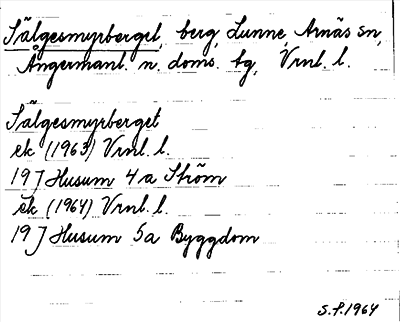 Sälgesmyrberget, berg, Lunne, Arnäs sn,
Ångermanl. n. doms. tg, Vrnl. l.
Sälgesmyrberget
ek (1963) Vrnl. l.
19 J Husum 4 a Ström
ek (1964) Vrnl. l.
19 J Husum 5 a Byggdom
S.P. 1964